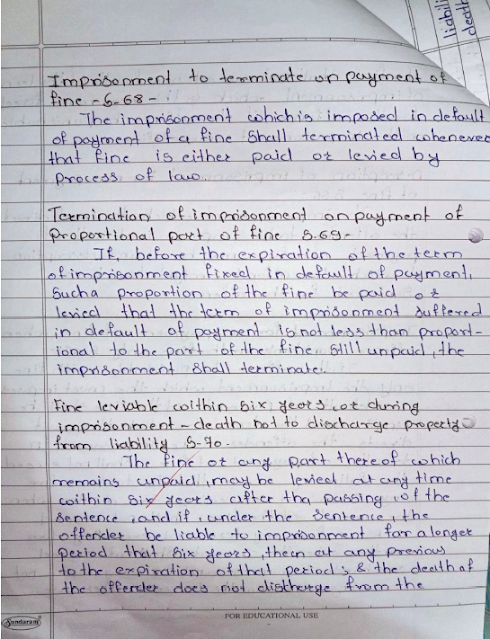 liabili
death
Imprisonment to terminate on payment of
fine - S-68 -
The imprisonment which is imposed in default
of payment of a fine shall terminated whenever
that fine is either paid or levied by
process of law.
Termination of imprisonment on payment of
Proportional part of fine S.69-
If, before the expiration of the term
of imprisonment fixed in default of payment,
Sucha proportion of the fine be paid or
levied that the term of imprisonment suffered
in default of payment is not less than proport-
ional to the part of the fine still unpaid, the
imprisonment shall terminate.
Fine leviable within six years, or during
imprisonment - death not to discharge property
from liability S-70.
The fine or any part thereof which
remains unpaid, may be levied at any time
within six years after tha passing of the
sentence, and if, under the sentence, the
offender be liable to imprisonment for a longer
period that six years, then at any previous
to the expiration of that period; & the death of
the offender does not distcharge from the
Sundaram
FOR EDUCATIONAL USE